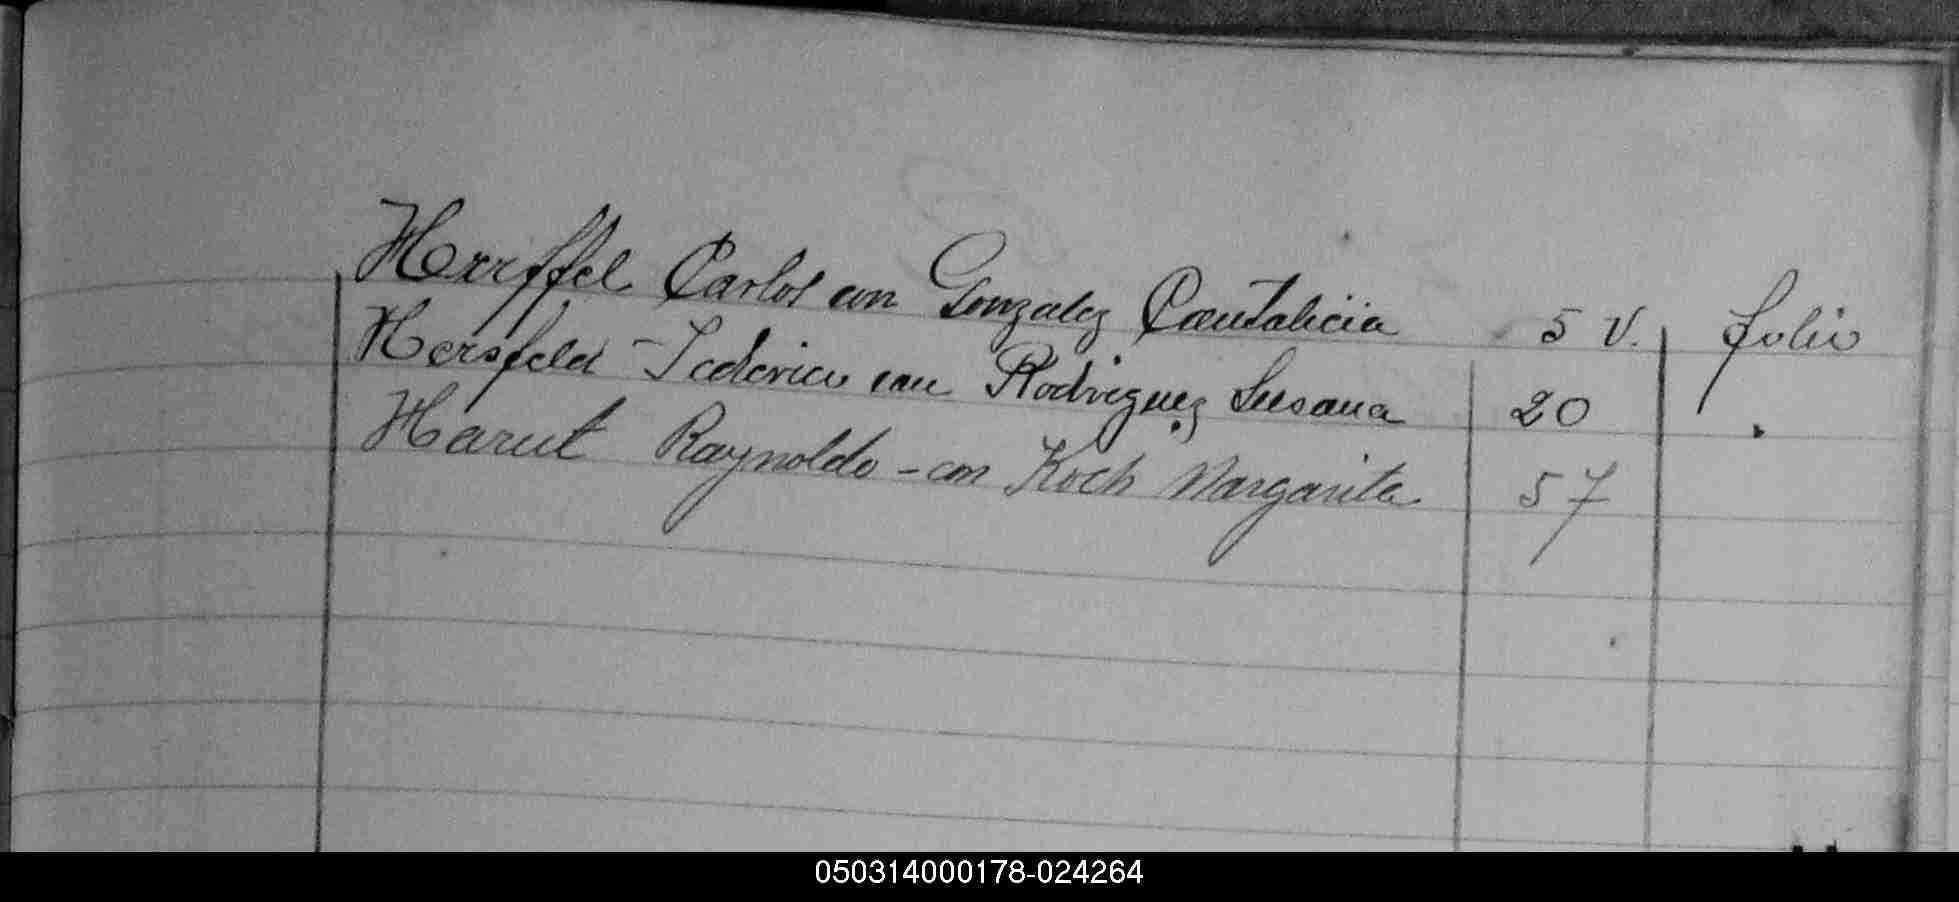 Herrffel Carlos con Gonzalez Cantalicia 5 V. folio
Hersfeld Federico con Rodriguez Susana 20 "
Harut Raynoldo - con Koch Margarita 57
050314000178-024264